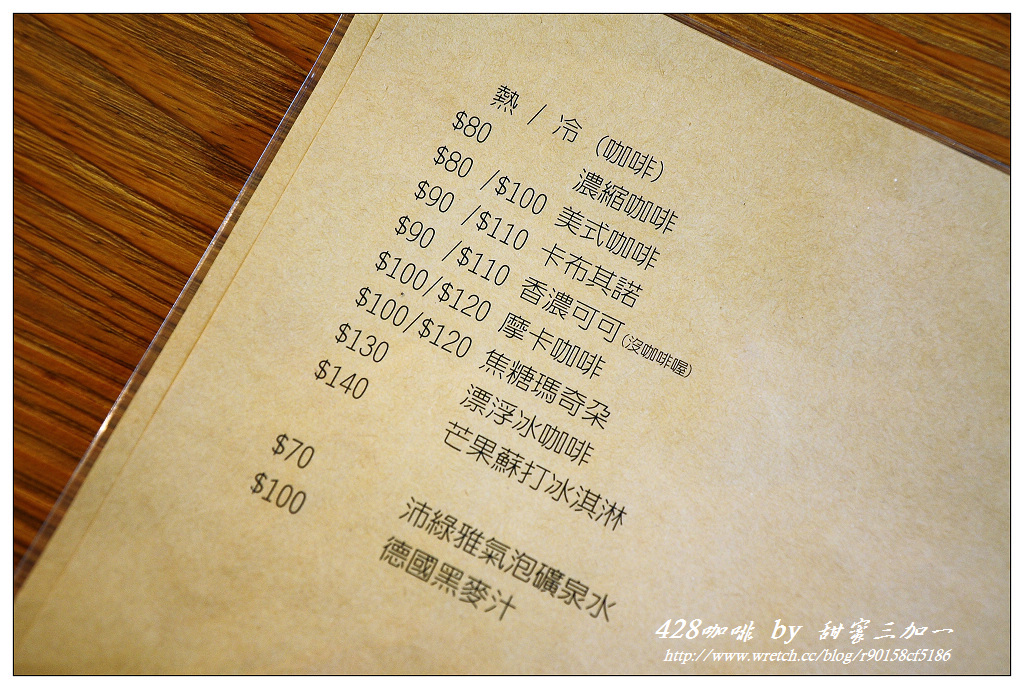 熱 / 冷 (咖啡)
$80 濃縮咖啡
$80 /$100 美式咖啡
$90 /$110 卡布其諾
$90 /$110 香濃可可(沒咖啡喔)
$100/$120 摩卡咖啡
$100/$120 焦糖瑪奇朵
$130 漂浮冰咖啡
$140 芒果蘇打冰淇淋
$70 沛綠雅氣泡礦泉水
$100 德國黑麥汁
428咖啡 by 甜蜜三加一
http://www.wretch.cc/blog/r90158cf5186